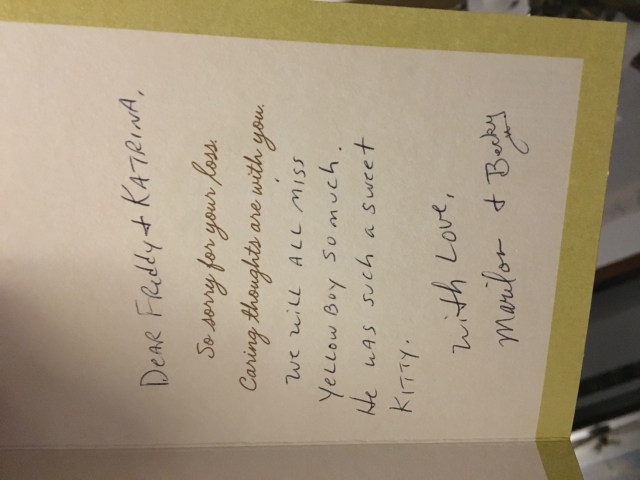 DEAR FREDDY & KATRINA,
So sorry for your loss.
Caring thoughts are with you.
WE WILL ALL MISS
YELLOW BOY SO MUCH.
He WAS such a sweet
KITTY.
With Love,
Marilon & Becky